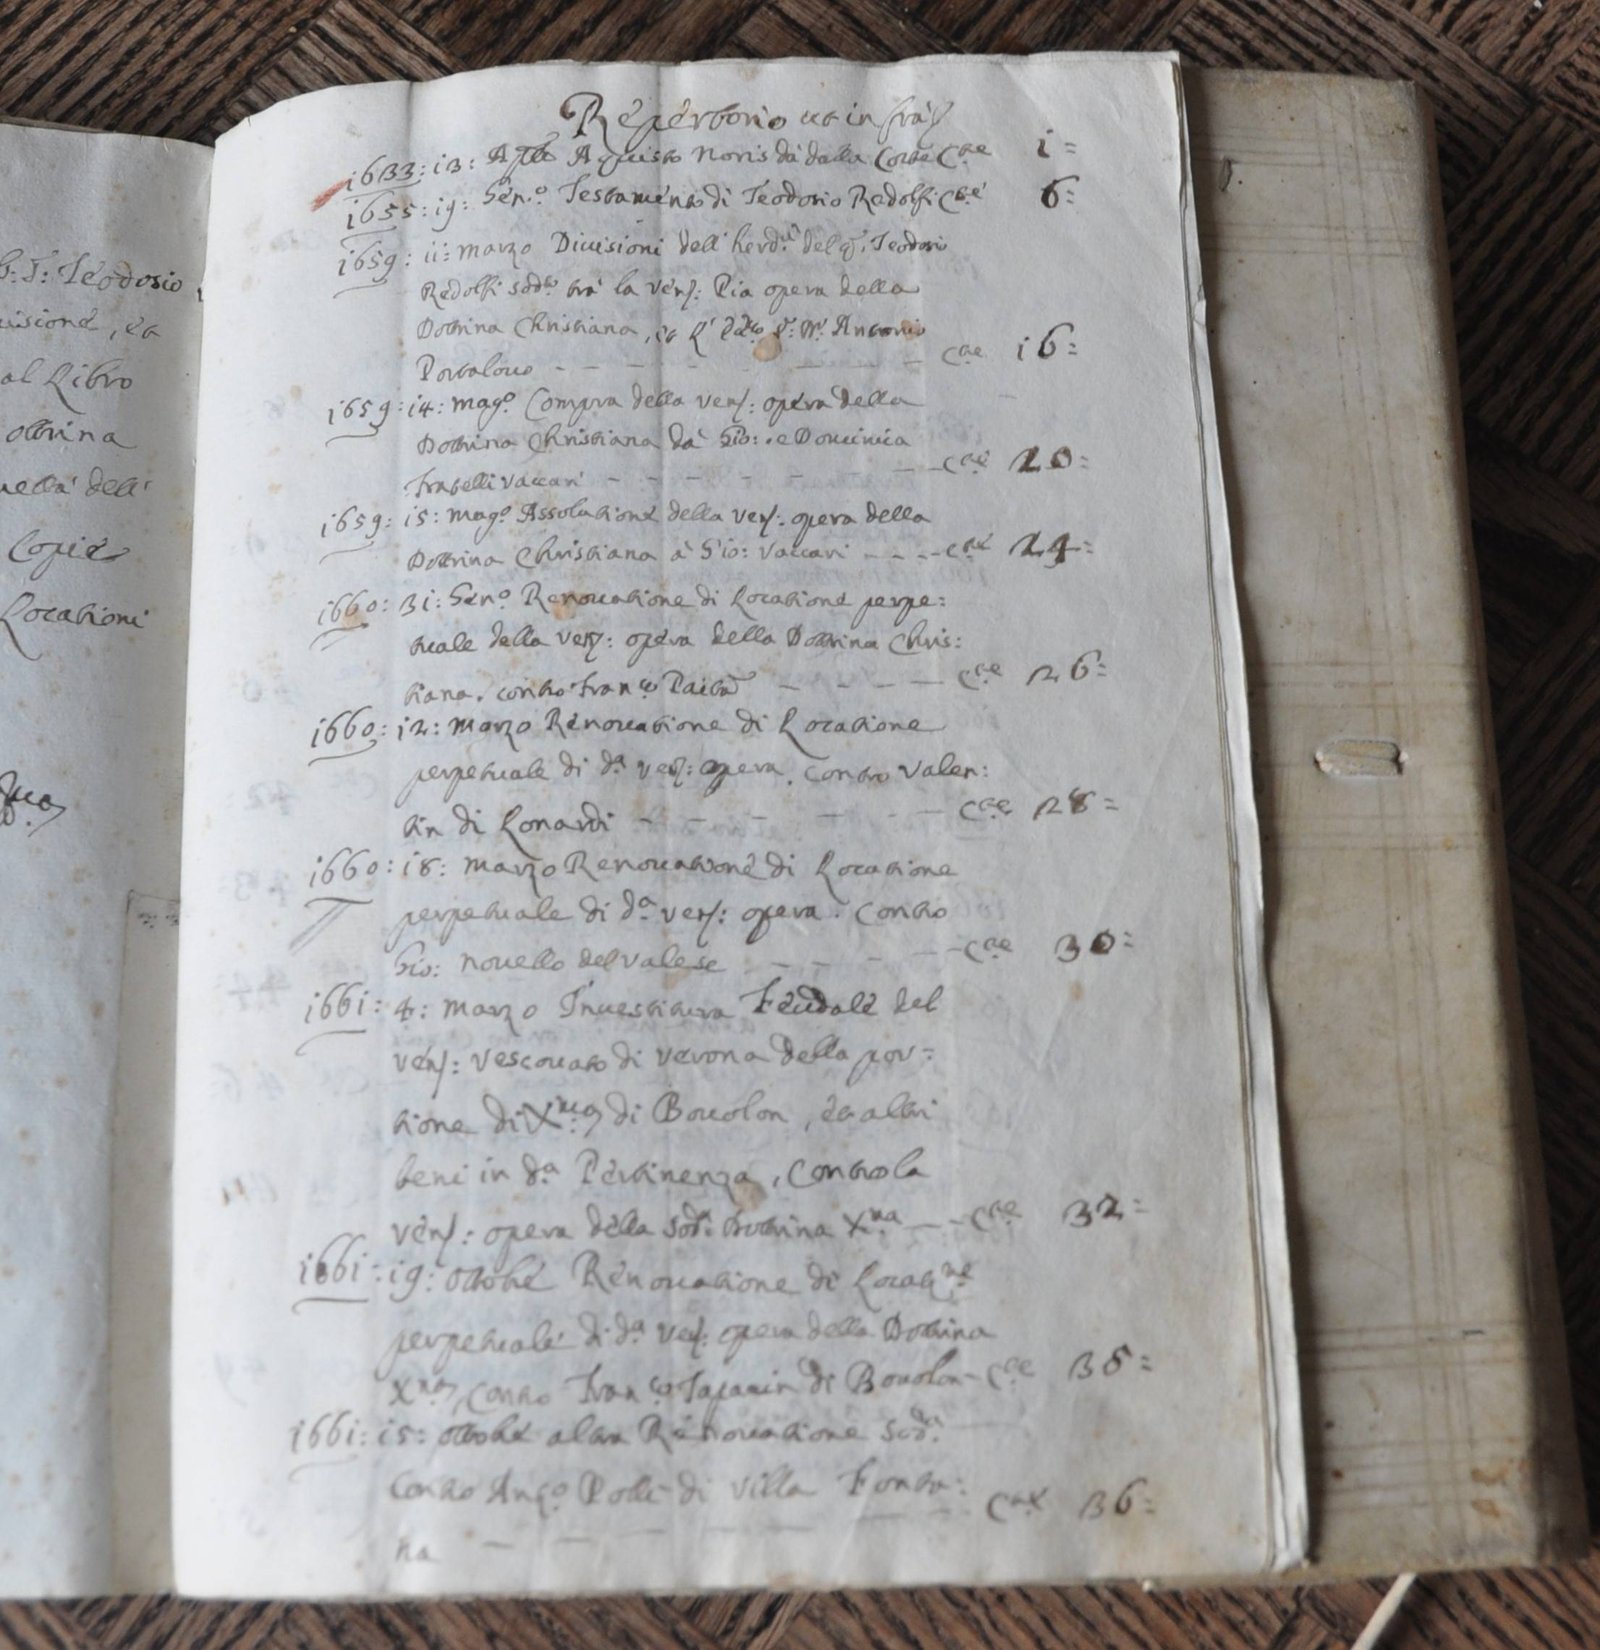 G: T: Teodosio
uisione, et
al Libro
ottrina
uella dell'
Copie
Locationi
Repertorio ut infra
1633: 13: Aple Aquisto Noris da dalla Corte Cte 1=
1655: 19: Gen.o Testamento di Teodosio Redolfi Cte 6=
1659: 11: marzo Diuisioni dell' hered.tà del q. Teodosio
Redolfi sod.to trà la Ven: Pia opera della
Dottrina Christiana, et Antonio
Portalouo - - - - - Cte 16=
1659: 14: mag.o Compra della Ven: opera della
Dottrina Christiana dà Gio: e Dominica
fratelli Vaccari - - - - - Cte 20=
1659: 15: mag.o Assolutione della Ven: opera della
Dottrina Christiana à Gio: Vaccari - - - Cte 24=
1660: 31: Gen.o Renouatione di Locatione perpe:
tuale della Ven: opera della Dottrina Chris:
tiana. contro Fran.co - - - - Cte 26=
1660: 12: marzo Renouatione di Locatione
perpetuale di d.a Ven: opera. contro Valen:
tin di Lonardi - - - - - Cte 28=
1660: 18: marzo Renouatione di Locatione
perpetuale di d.a Ven: opera. contro
Gio: nouello del Valese - - - - Cte 30=
1661: 4: marzo Inuestitura Feudale del
Ven: Vescouato di Verona della por=
tione di X.me di Bouolon, et altri
beni in d.a Pertinenza, Contro la
Ven: opera della sod.a Dottrina X.na - - Cte 32=
1661: 19: ottobre Renouatione di Locat.ne
perpetuale di d.a Ven: opera della Dottrina
X.na, Contro Fran.co di Bouolon - Cte 35=
1661: 15: ottobre altra Renouatione sod.a
Contro Ang.o Polli di Villa Fonta:
na - - - - - Cte 36=